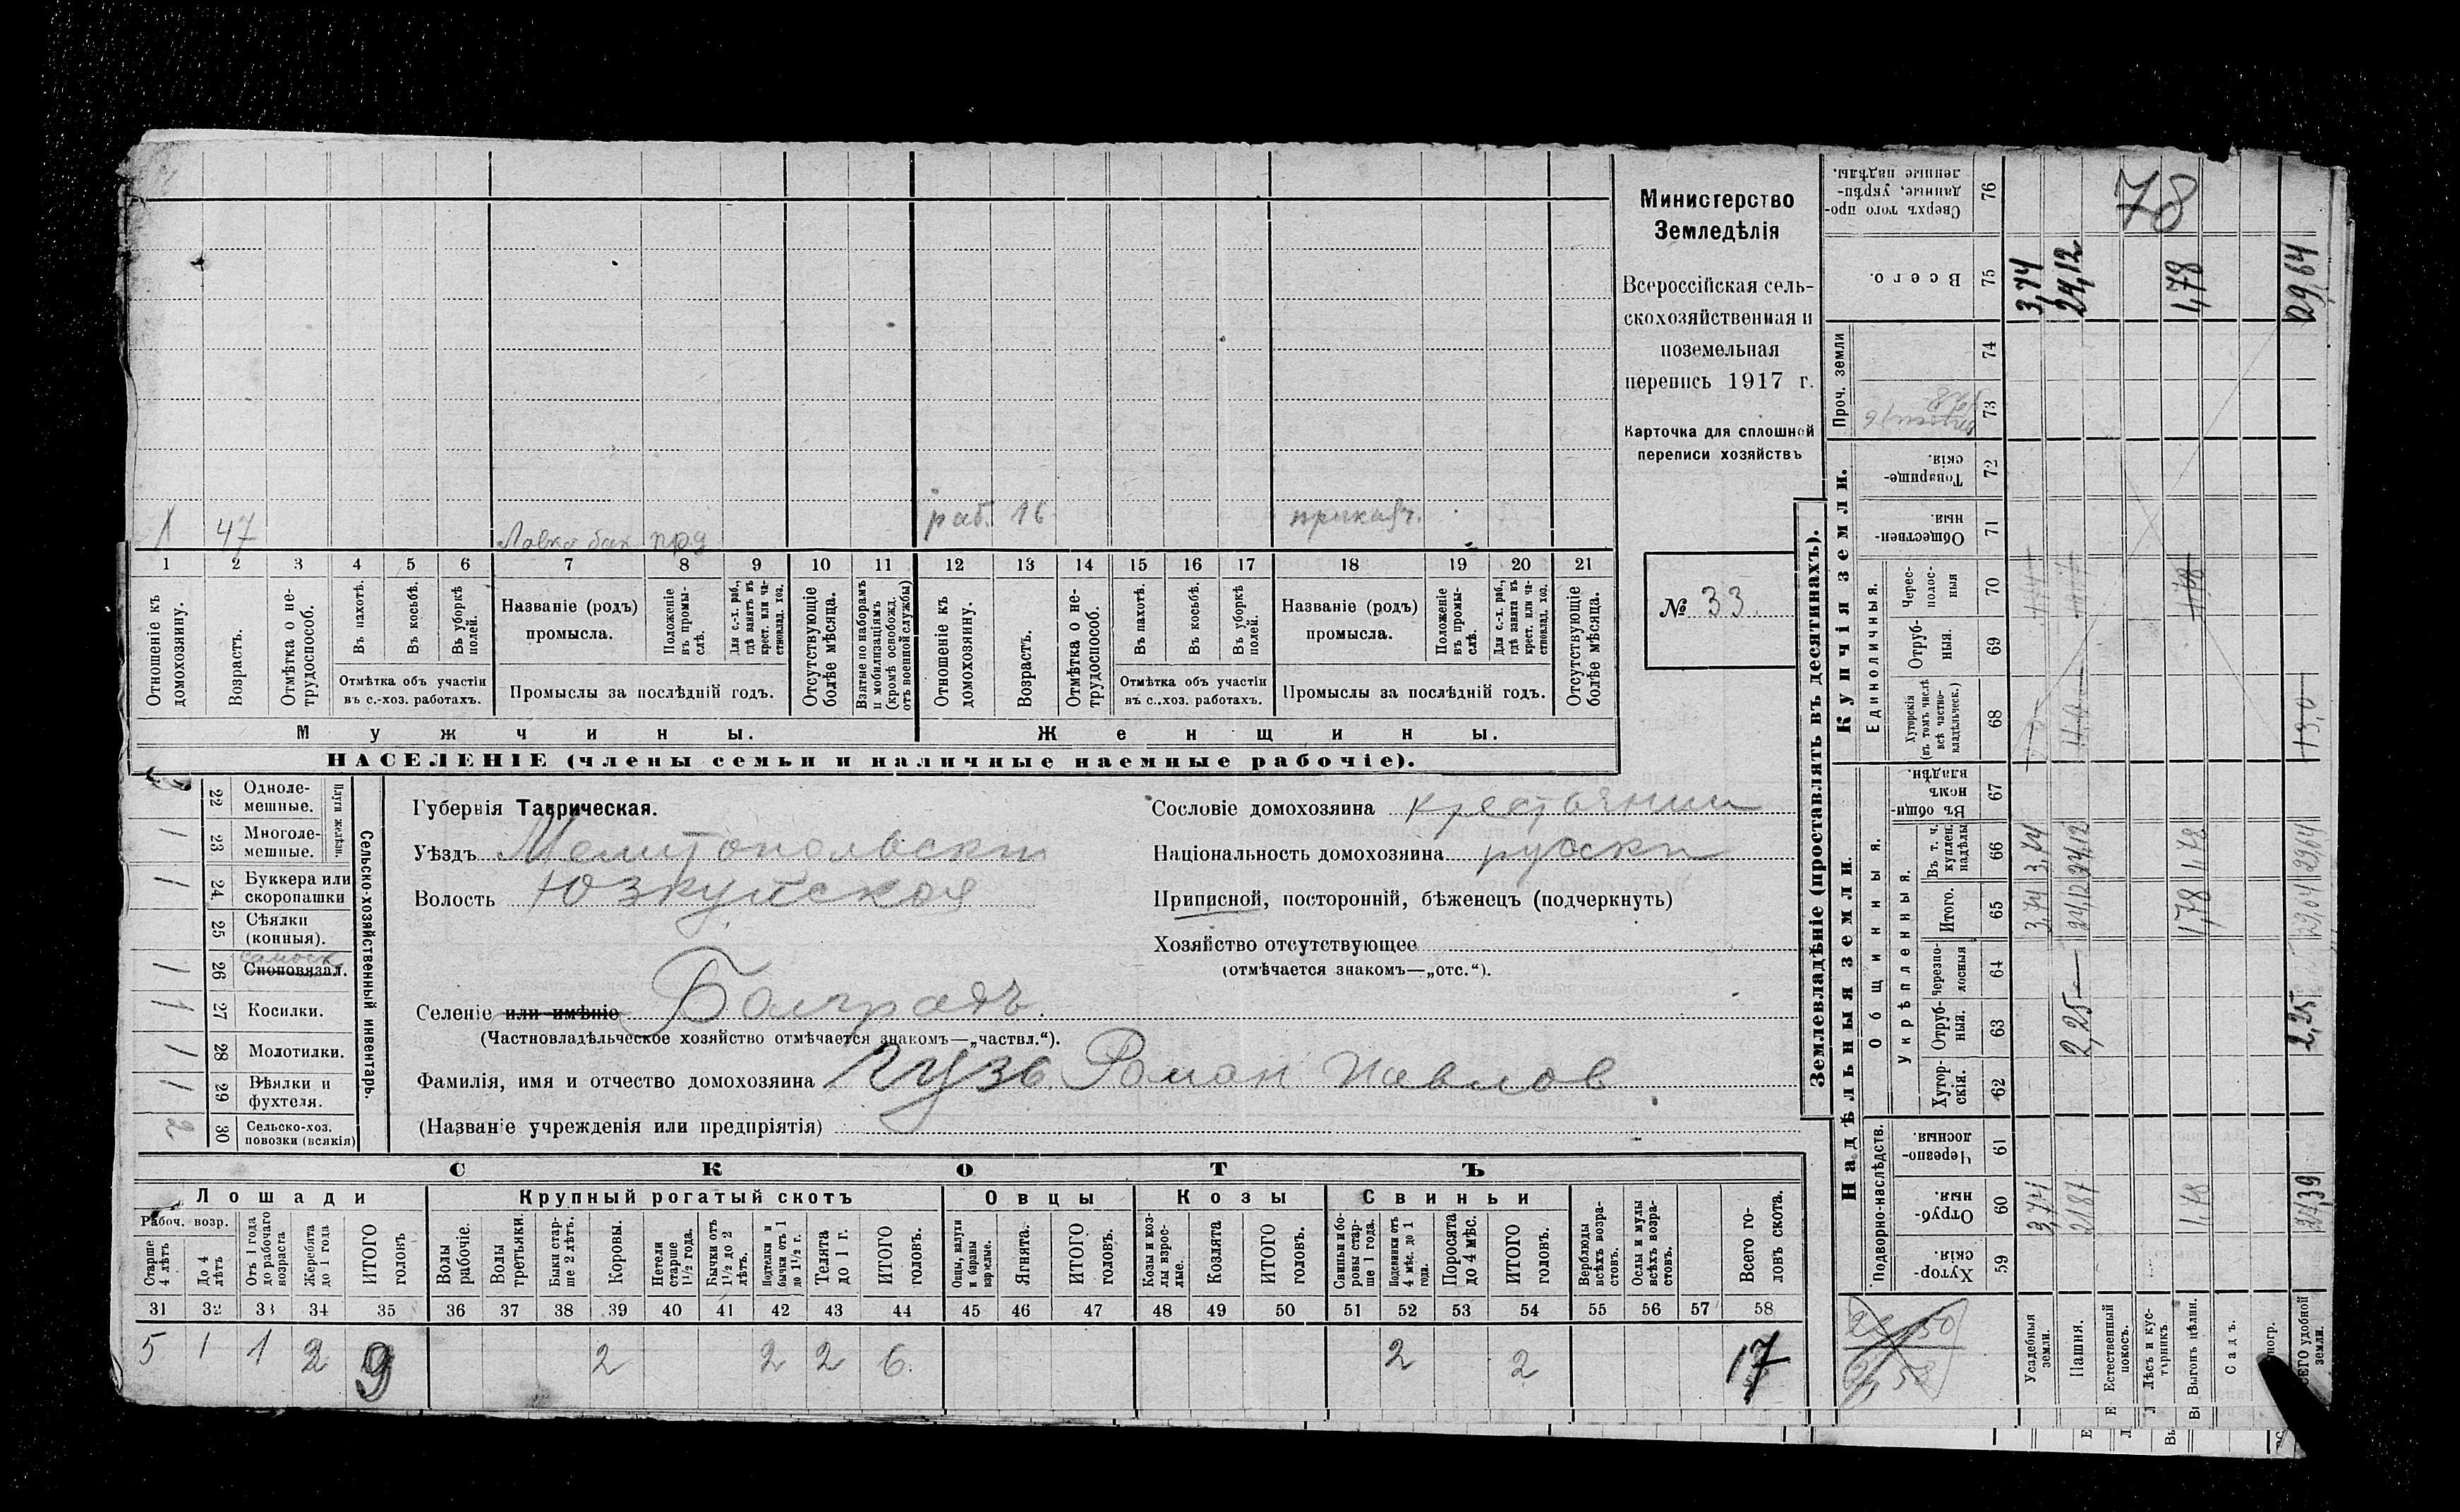 1 47 Лавка бак. раб. 16 приказч.
1 2 3 4 5 6 7 8 9 10 11 12 13 14 15 16 17 18 19 20 21
Отношеніе къ домохозяину.
Возрастъ.
Отмѣтка о нетрудоспособ.
Въ пахотѣ.
Въ косьбѣ.
Въ уборкѣ полей.
Отмѣтка объ участіи
въ с.-хоз. работахъ.
Названіе (родъ)
промысла.
Положеніе въ промыслѣ.
Для с.-х. раб., гдѣ занятъ въ крест. или частновлад. хоз.
Промыслы за послѣдній годъ.
Отсутствующіе болѣе мѣсяца.
Взятые по наборамъ и мобилизаціямъ (кромѣ освобожд. отъ военной службы)
Отношеніе къ домохозяину.
Возрастъ.
Отмѣтка о нетрудоспособ.
Въ пахотѣ.
Въ косьбѣ.
Въ уборкѣ полей.
Отмѣтка объ участіи
въ с.-хоз. работахъ.
Названіе (родъ)
промысла.
Положеніе въ промыслѣ.
Для с.-х. раб., гдѣ занята въ крест. или частновлад. хоз.
Промыслы за послѣдній годъ.
Отсутствующіе болѣе мѣсяца.
Мужчины. Женщины.
НАСЕЛЕНІЕ (члены семьи и наличные наемные рабочіе).
Министерство
Земледѣлія
Всероссійская сель-
скохозяйственная и
поземельная
перепись 1917 г.
Карточка для сплошной
переписи хозяйствъ
№ 33.
Плуги желѣзн.
22 Одноле-
мешные.
1 23 Многоле-
мешные.
1 24 Буккера или
скоропашки
25 Сѣялки
(конныя).
1 26 Сноповязал.
1 27 Косилки.
1 28 Молотилки.
1 29 Вѣялки и
фухтеля.
2 30 Сельско-хоз.
повозки (всякія)
Сельско-хозяйственный инвентарь.
Губернія Таврическая.
Уѣздъ Мелитопольскій
Волость Юзкуйская
Селеніе или имѣніе Болградъ.
(Частновладѣльческое хозяйство отмѣчается знакомъ—„частвл.“).
Фамилія, имя и отчество домохозяина Гузь Роман Павлов
(Названіе учрежденія или предпріятія)
Сословіе домохозяина крестьянин
Національность домохозяина русски
Приписной, посторонній, бѣженецъ (подчеркнуть)
Хозяйство отсутствующее
(отмѣчается знакомъ—„отс.“).
СКОТЪ
Лошади Крупный рогатый скотъ Овцы Козы Свиньи
Рабоч. возр.
Старше 4 лѣтъ
До 4 лѣтъ
Отъ 1 года до рабочаго возраста
Жеребята до 1 года
ИТОГО головъ
Волы рабочіе.
Волы третьяки.
Быки старше 2 лѣтъ.
Коровы.
Нетели старше 1½ года.
Бычки отъ 1½ до 2 лѣтъ.
Подтелки и бычки отъ 1 до 1½ г.
Телята до 1 г.
ИТОГО головъ.
Овцы, валухи и бараны взрослые.
Ягнята.
ИТОГО головъ.
Козы и козлы взрослые.
Козлята
ИТОГО головъ.
Свиньи и боровы старше 1 года.
Подсвинки отъ 4 мѣс. до 1 года.
Поросята до 4 мѣс.
ИТОГО головъ.
Верблюды всѣхъ возрастовъ.
Ослы и мулы всѣхъ возрастовъ.
Всего головъ скота.
31 32 33 34 35 36 37 38 39 40 41 42 43 44 45 46 47 48 49 50 51 52 53 54 55 56 57 58
5 1 1 2 9 2 2 2 6 2 2 17
Землевладѣніе (проставлять въ десятинахъ).
Надѣльныя земли. Купчія земли. Проч. земли
Подворно-наслѣдств. Общинныя. Единоличныя.
Укрѣпленныя.
59 Хутор-
скія.
60 Отруб-
ныя.
61 Черезпо-
лосныя
62 Хутор-
скія.
63 Отруб-
ныя.
64 Черезпо-
лосныя
65 Итого.
66 Въ т. ч. куплен. надѣлы
67 Въ общи-
номъ
владѣн.
68 Хуторскія (въ томъ числѣ всѣ частновладѣльческ.)
69 Отруб-
ныя.
70 Черес-
полос-
ныя
71 Обществен-
ныя.
72 Товарище-
скія.
73
74
75 Всего.
76 Сверхъ того про-
данные, укрѣп-
ленные надѣлы.
78
Усадебныя земли. 3,74 3,74 3,74 3,74
Пашня. 21,87 2,25 24,12 24,12 24,12
Естественный покосъ.
Лѣсъ и кустарникъ
Выгонъ цѣлин. 1,78 1,78 1,78 1,78
Садъ.
ВСЕГО удобной земли. 27,39 2,25 29,64 29,64 29,64